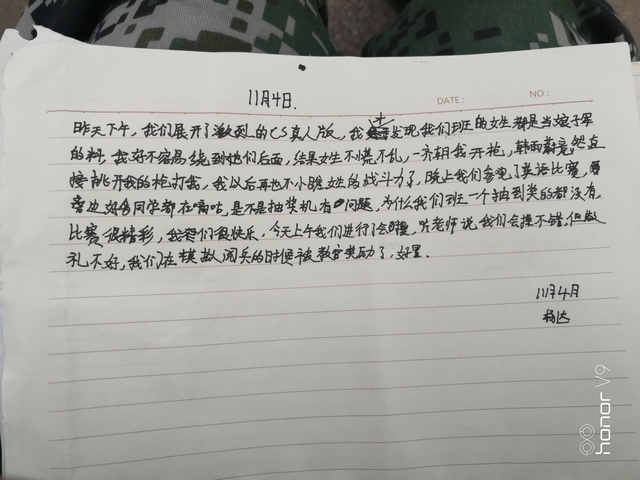 11月4日.
DATE:
NO:
昨天下午,我们展开了激烈的CS真人版,我才发现我们班的女生都是当娘子军
的料.我好不容易绕到他们后面,结果女生不慌不乱,一齐朝我开枪,韩雨蔚竟然直
接挑开我的枪打我,我以后再也不小瞧女生的战斗力了,晚上我们参观了英语比赛,
旁边好多同学都在嘀咕,是不是抽奖机有问题,为什么我们班一个抽到奖的都没有,
比赛很精彩,我們很快乐,今天上午我们进行了会操,老师说我们会操不错,但敬
礼不好,我们在模拟阅兵的时候被教官奖励了,好累.
11月4日
杨达
honor V9